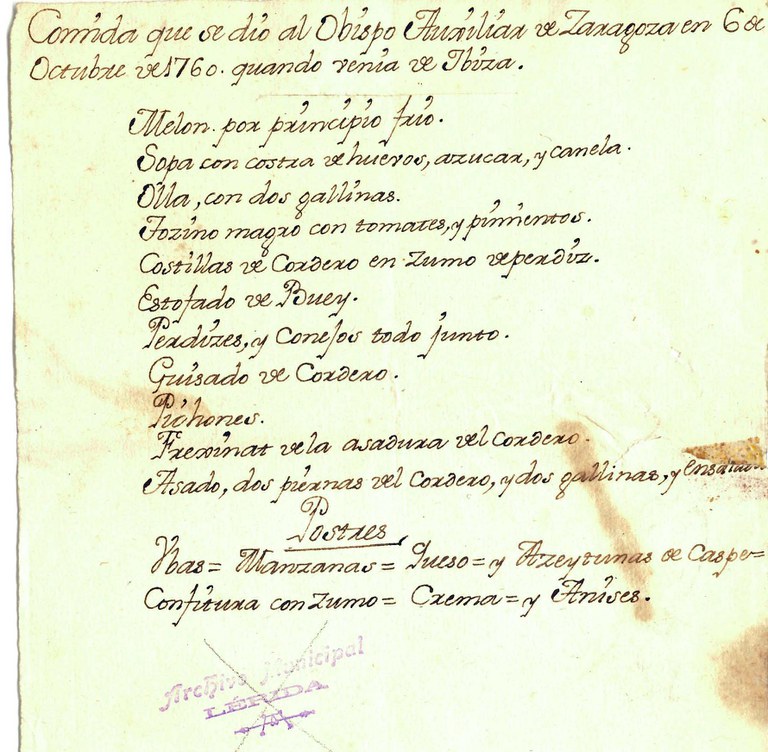 Comida que se dio al Obispo Auxiliar de Zaragoza en 6 de
Octubre de 1760. quando venia de Ibiza.
Melon por principio frio.
Sopa con costra de huevos, azucar, y canela.
Olla, con dos gallinas.
Tozino magro con tomates, y pimientos.
Costillas de Cordero en zumo de perdiz.
Estofado de Buey.
Perdizes, y Conejos todo junto.
Guisado de Cordero.
Pichones.
Frexinat de la asadura del cordero.
Asado, dos piernas del Cordero, y dos gallinas, y
Postres
Vbas = Manzanas = Queso = y Azeytunas de Caspe =
Confitura con zumo = Crema = y Anises.
Archivo Municipal
LÉRIDA